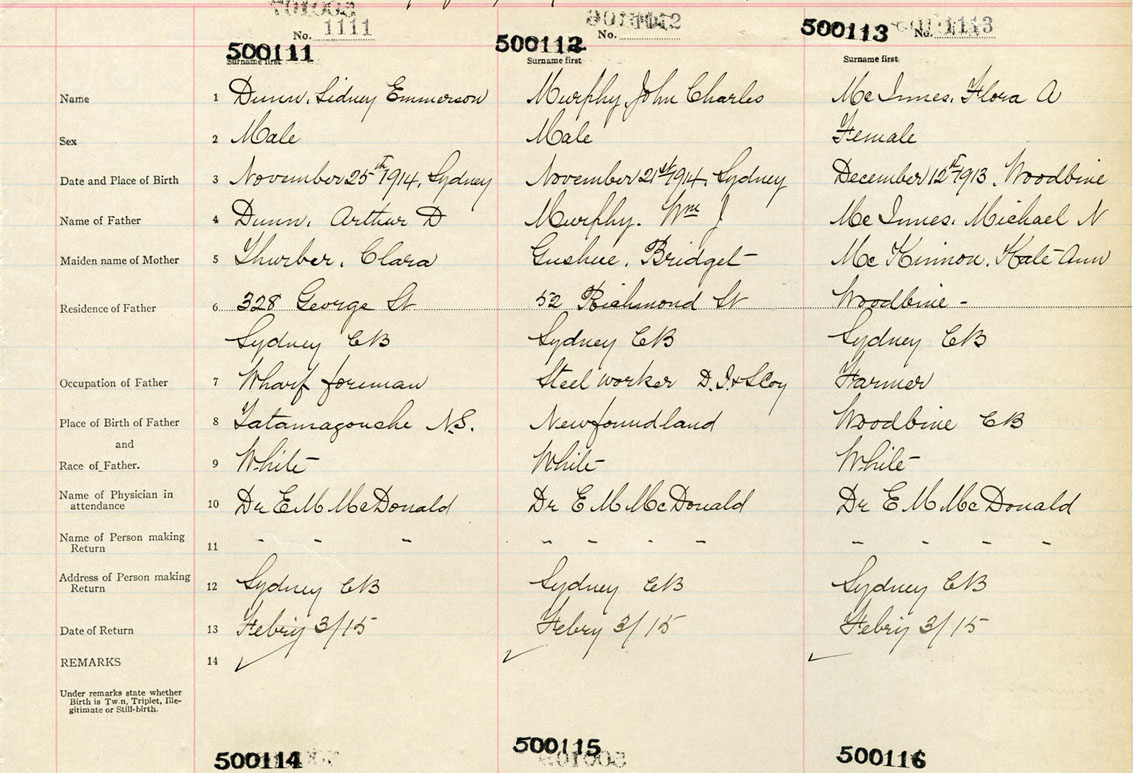 No. 1111 No. No. 1113
500111 500112 500113
Surname first Surname first Surname first
Name 1 Dunn, Sidney Emmerson Murphy John Charles McInnes, Flora A
Sex 2 Male Male Female
Date and Place of Birth 3 November 25th 1914, Sydney November 21st 1914, Sydney December 12th 1913. Woodbine
Name of Father 4 Dunn, Arthur D Murphy. Wm J McInnes. Michael N
Maiden name of Mother 5 Thurber, Clara Gushue, Bridget McKinnon, Kate Ann
Residence of Father 6 328 George St 52 Richmond St Woodbine -
Sydney CB Sydney CB Sydney CB
Occupation of Father 7 Wharf foreman Steel worker D. I & S Coy Farmer
Place of Birth of Father 8 Tatamagouche N.S. Newfoundland Woodbine CB
and
Race of Father. 9 White White White
Name of Physician in
attendance 10 Dr E M McDonald Dr E M McDonald Dr E M McDonald
Name of Person making
Return 11 " " " " " " " " " " "
Address of Person making
Return 12 Sydney CB Sydney CB Sydney CB
Date of Return 13 Febry 3/15 Febry 3/15 Febry 3/15
REMARKS 14
Under remarks state whether
Birth is Twin, Triplet, Ille-
gitimate or Still-birth.
500114 500115 500116